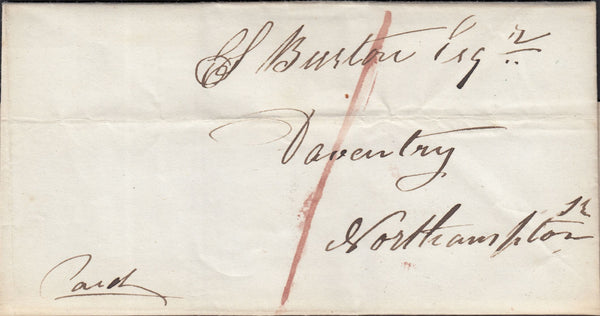 E S Burton Esqr
Daventry
Northamptonsr
Paid
1